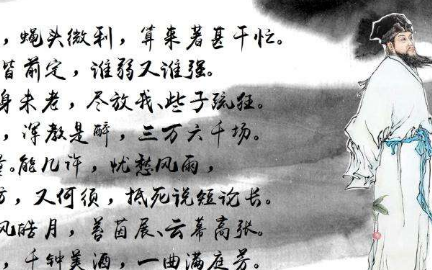 ，蝇头微利，算来著甚干忙。
皆前定，谁弱又谁强。
身未老，尽放我、些子疏狂。
，浑教是醉，三万六千场。
。能几许，忧愁风雨，
，又何须，抵死说短论长。
风皓月，苔茵展、云幕高张。
，千钟美酒，一曲满庭芳。